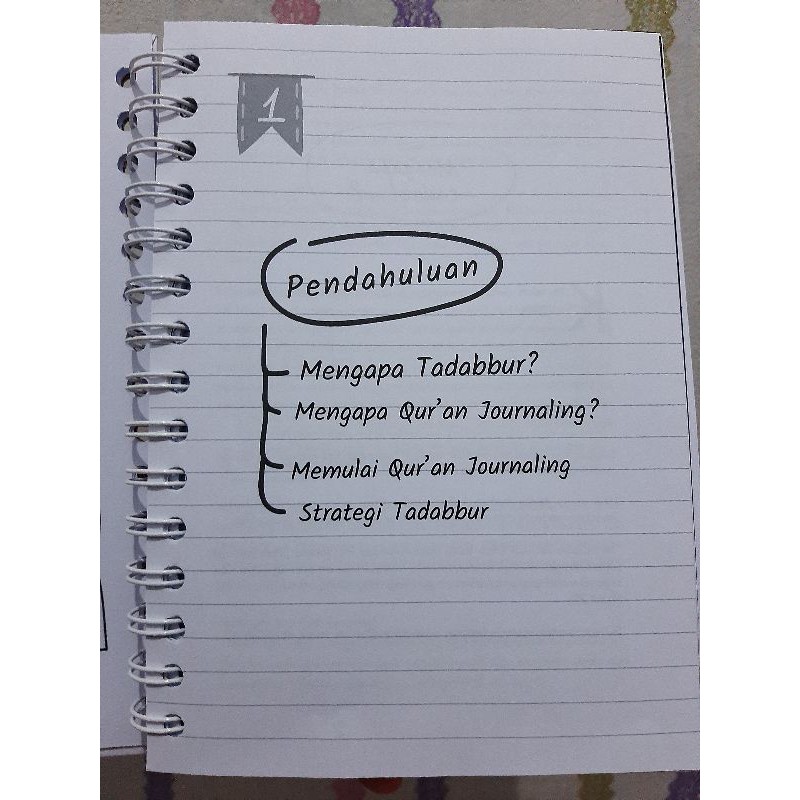 1
Pendahuluan
Mengapa Tadabbur?
Mengapa Qur'an Journaling?
Memulai Qur'an Journaling
Strategi Tadabbur